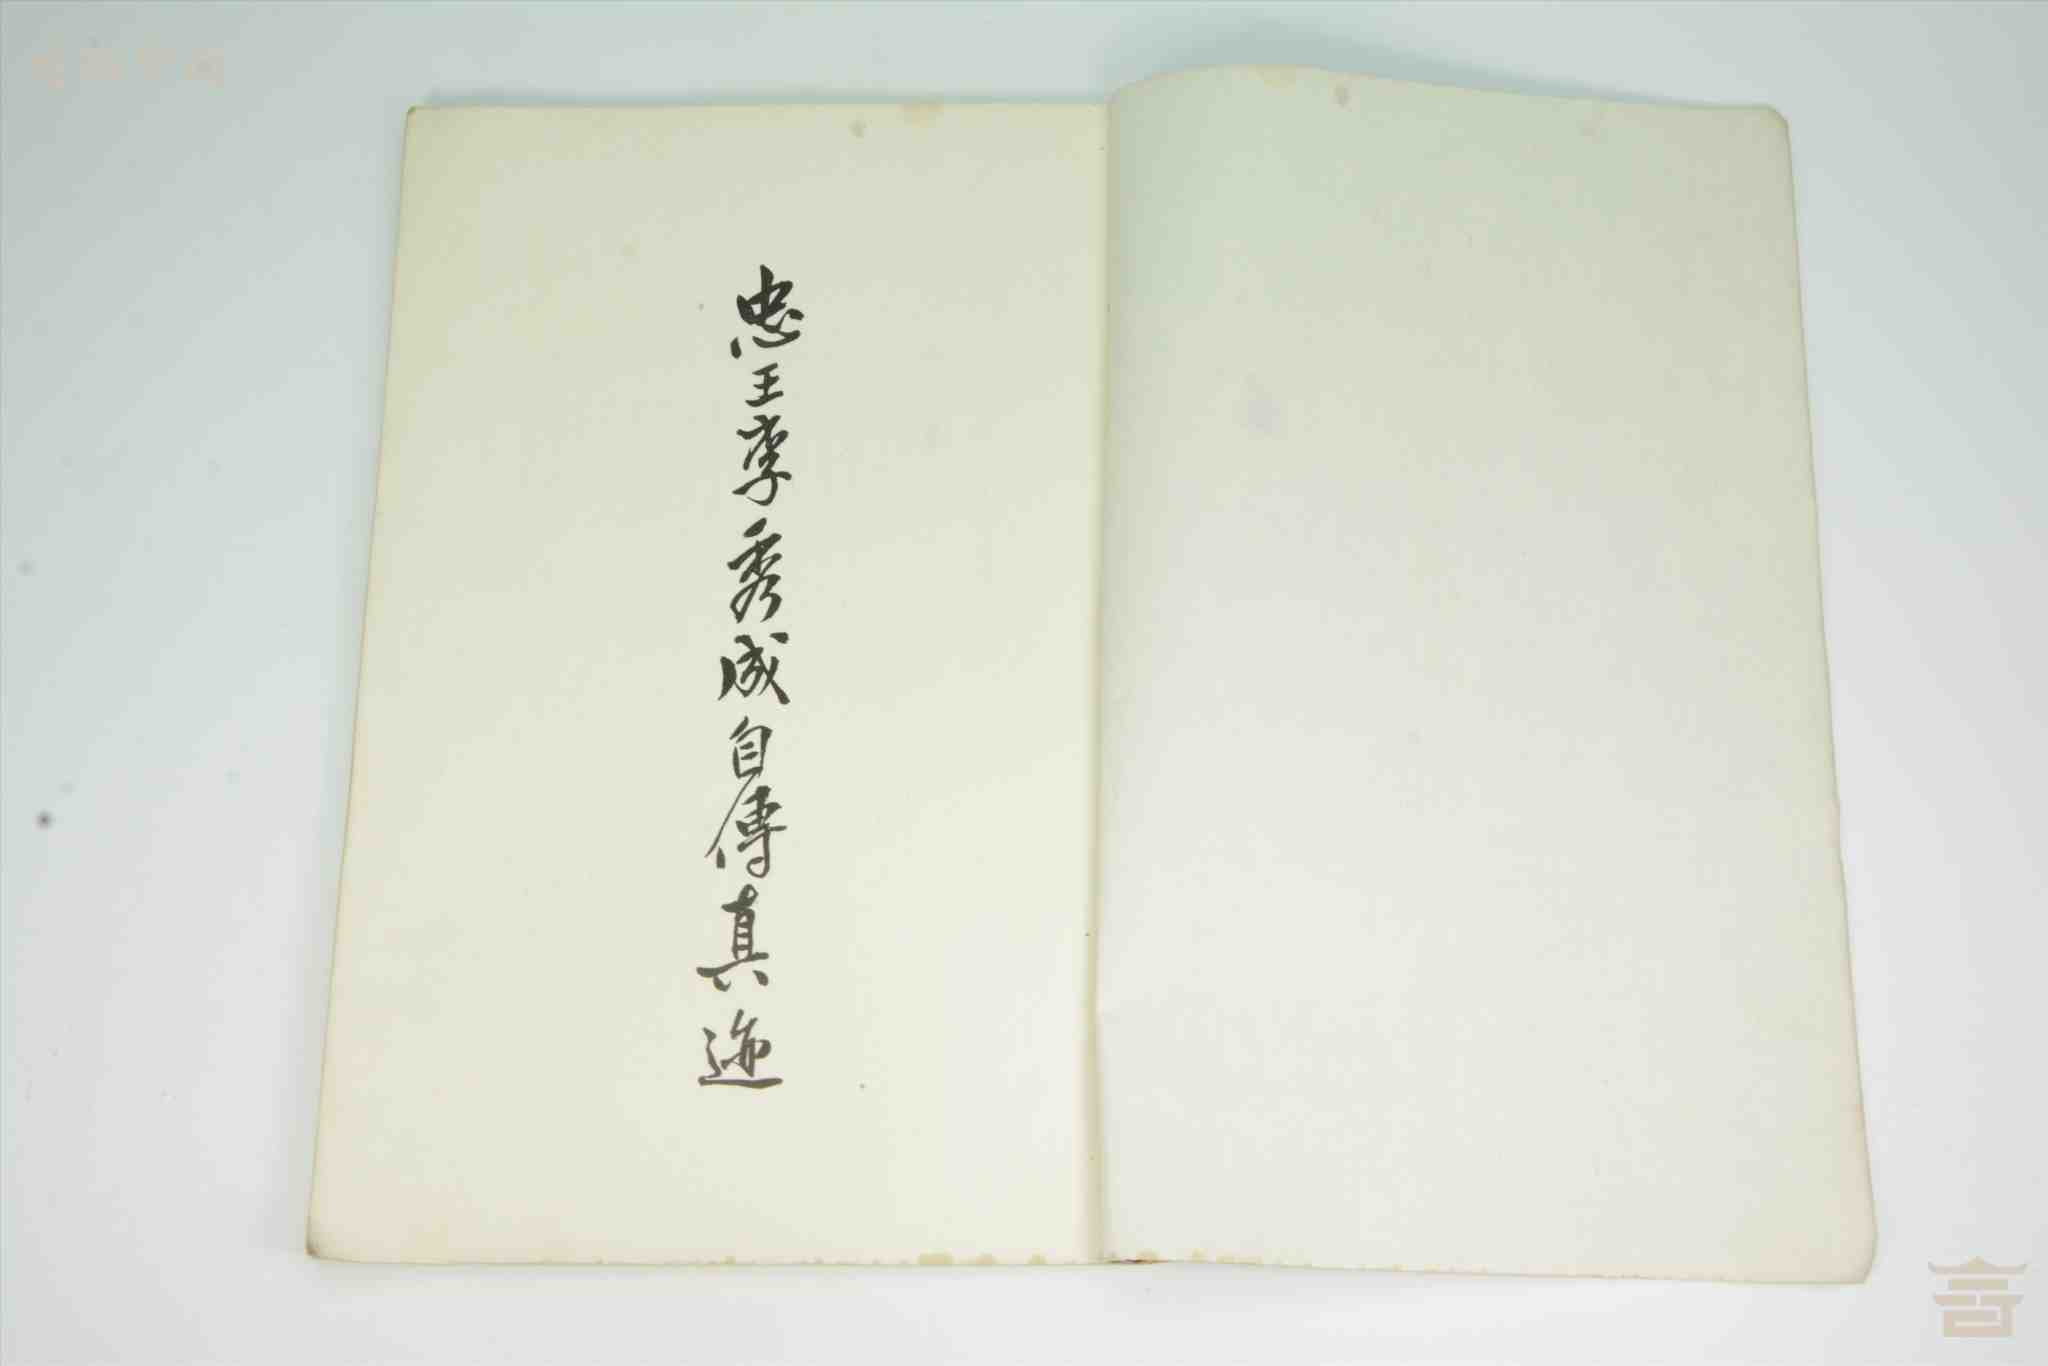 忠王李秀成自傳真迹